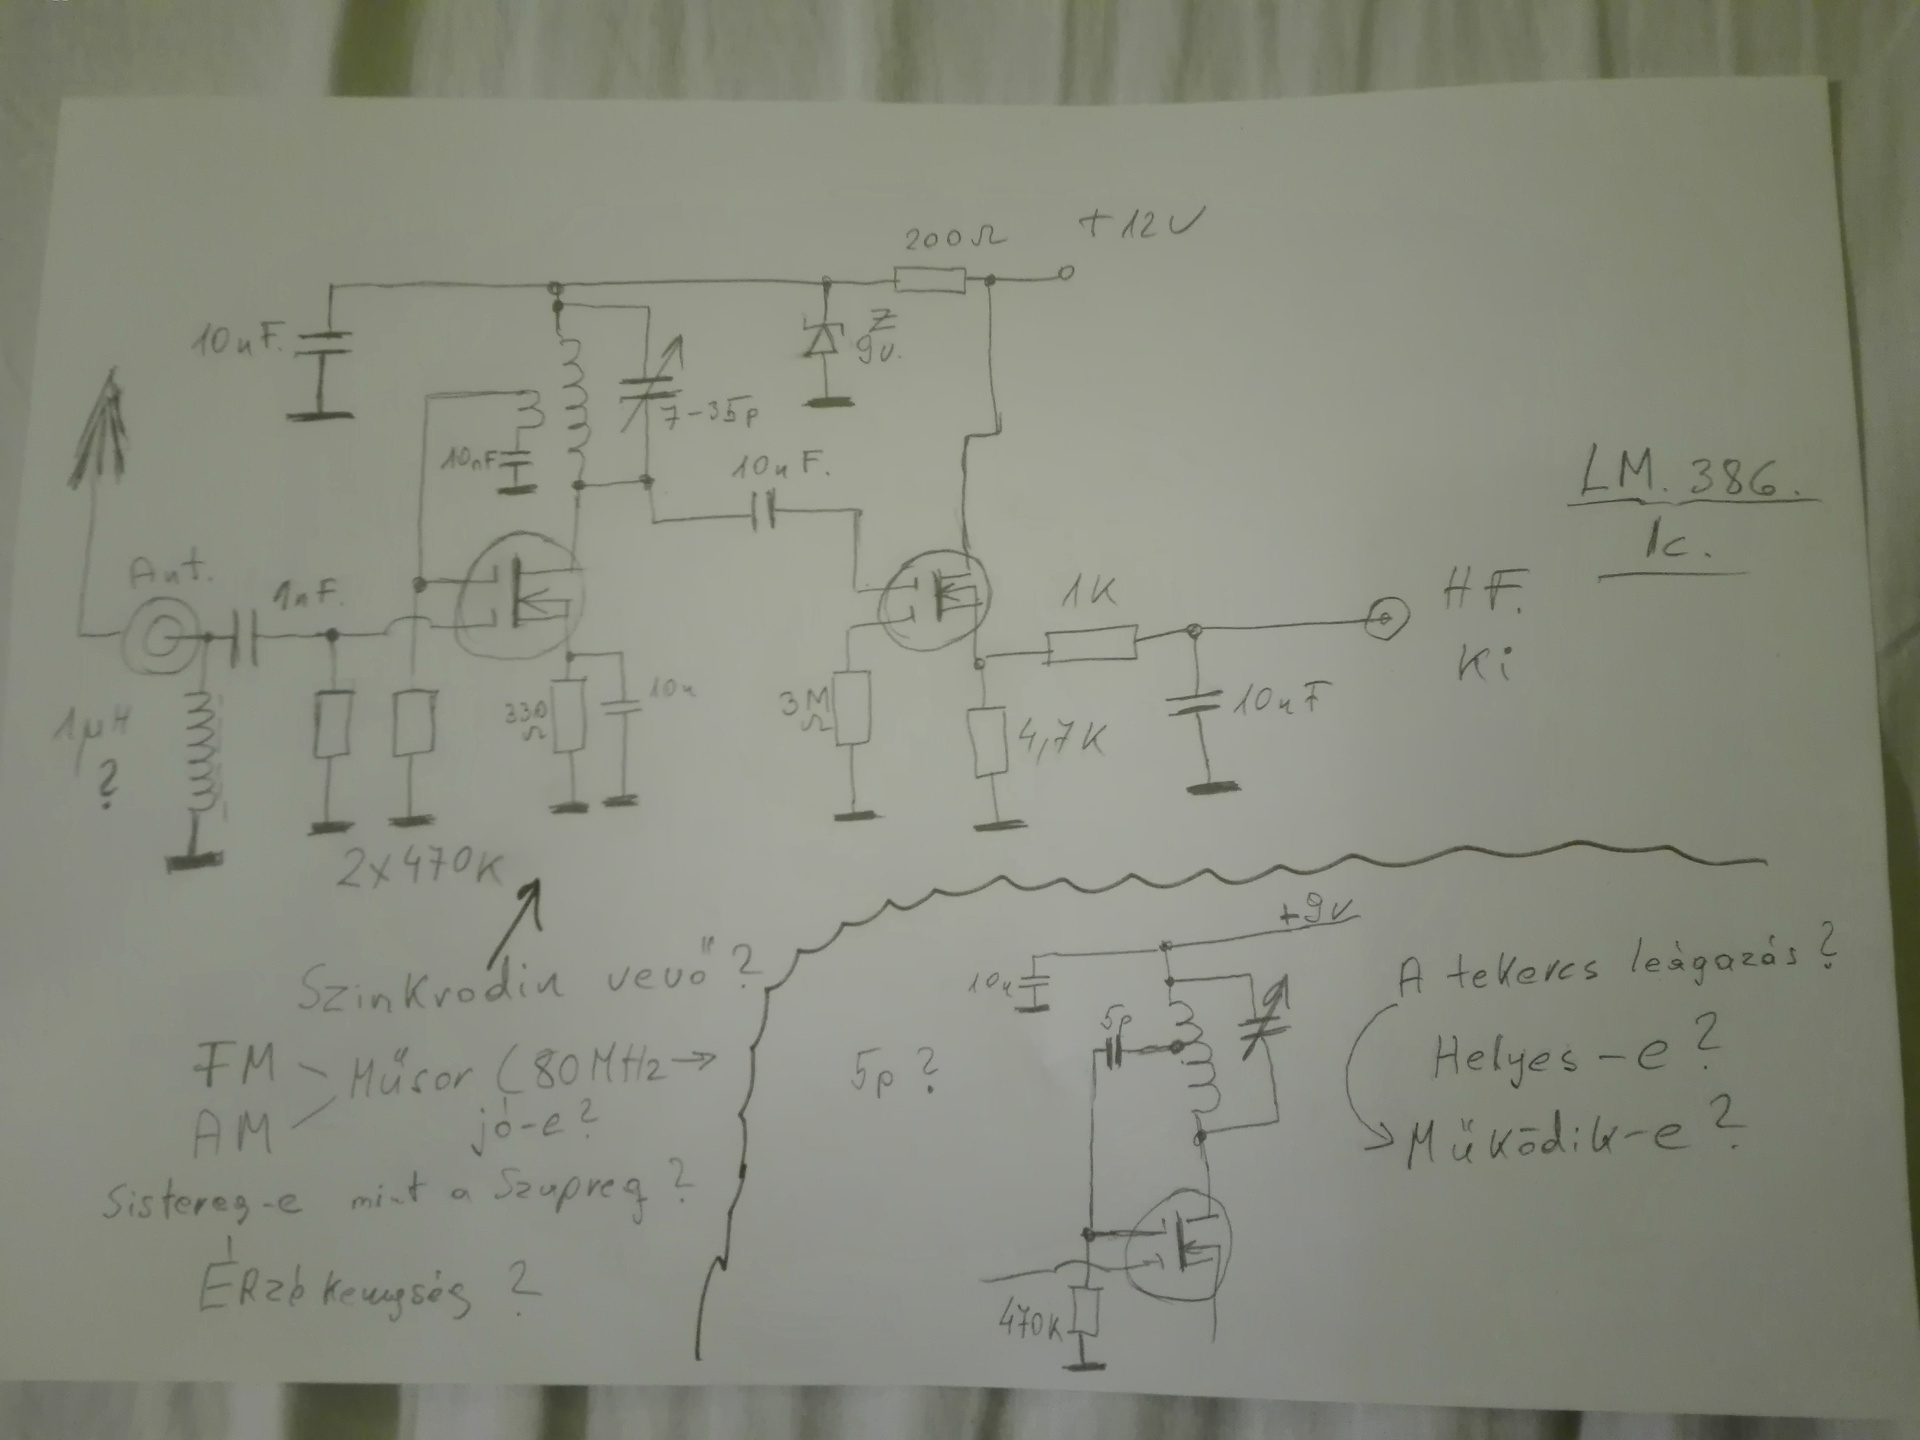 +12V
200Ω
10nF.
Z
9v.
7-35p
10nF
10nF.
LM. 386.
Ic.
Ant.
1nF.
1K
HF.
Ki
1µH
?
330
Ω
10n
3M
Ω
4,7K
10nF
2x470K
Szinkrodin vevő?
FM
AM
Műsor (80MHz→
jó-e?
Sistereg-e mint a Szupreg?
ÉRzékenység?
+9V
10n
5p
5p?
470K
A tekercs leágazás?
Helyes-e?
Működik-e?